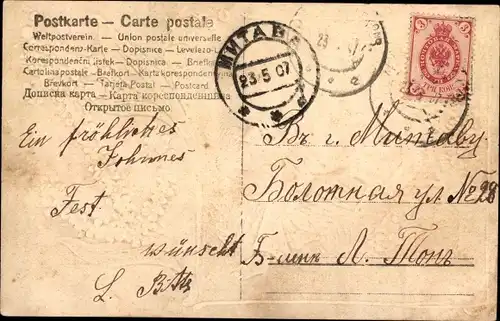 Postkarte — Carte postale
Weltpostverein. — Union postale universelle
Correspondenz-Karte — Dopisnice — Levelező-L
Korespondenční listek — Dopisnica — Briefkaa
Cartolina postale — Brefkort — Karta korespondencyjna
Brevkort — Tarjeta Postal — Postcard.
Дописна карта — Карта кореспонденційна
Открытое письмо
МИТАВА
23 5 07
23
07
3
3
ТРИ КОП.
Ein fröhliches
Johannes
Fest
wünscht
L.
Въ г. Митаву
Болотная ул. № 28
Л. Топъ